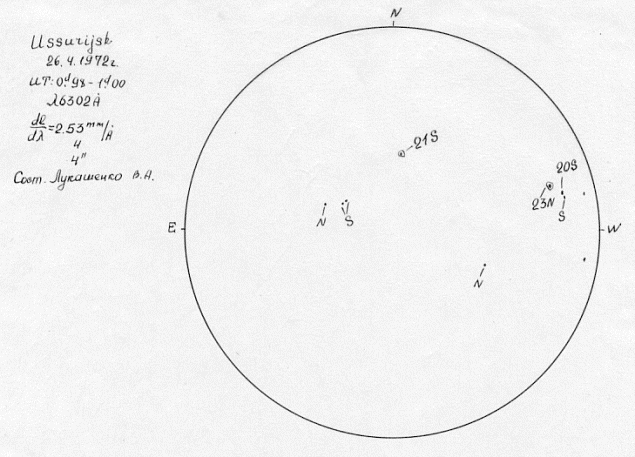 Ussurijsk
26.4.1972г.
UT: 0ᵈ98 - 1ᵈ00
λ6302Å
dl/dλ = 2.53 mm/Å
4
4"
Соот. Лукашенко В.А.
N
21S
20S
23N
S
N
S
E
W
N